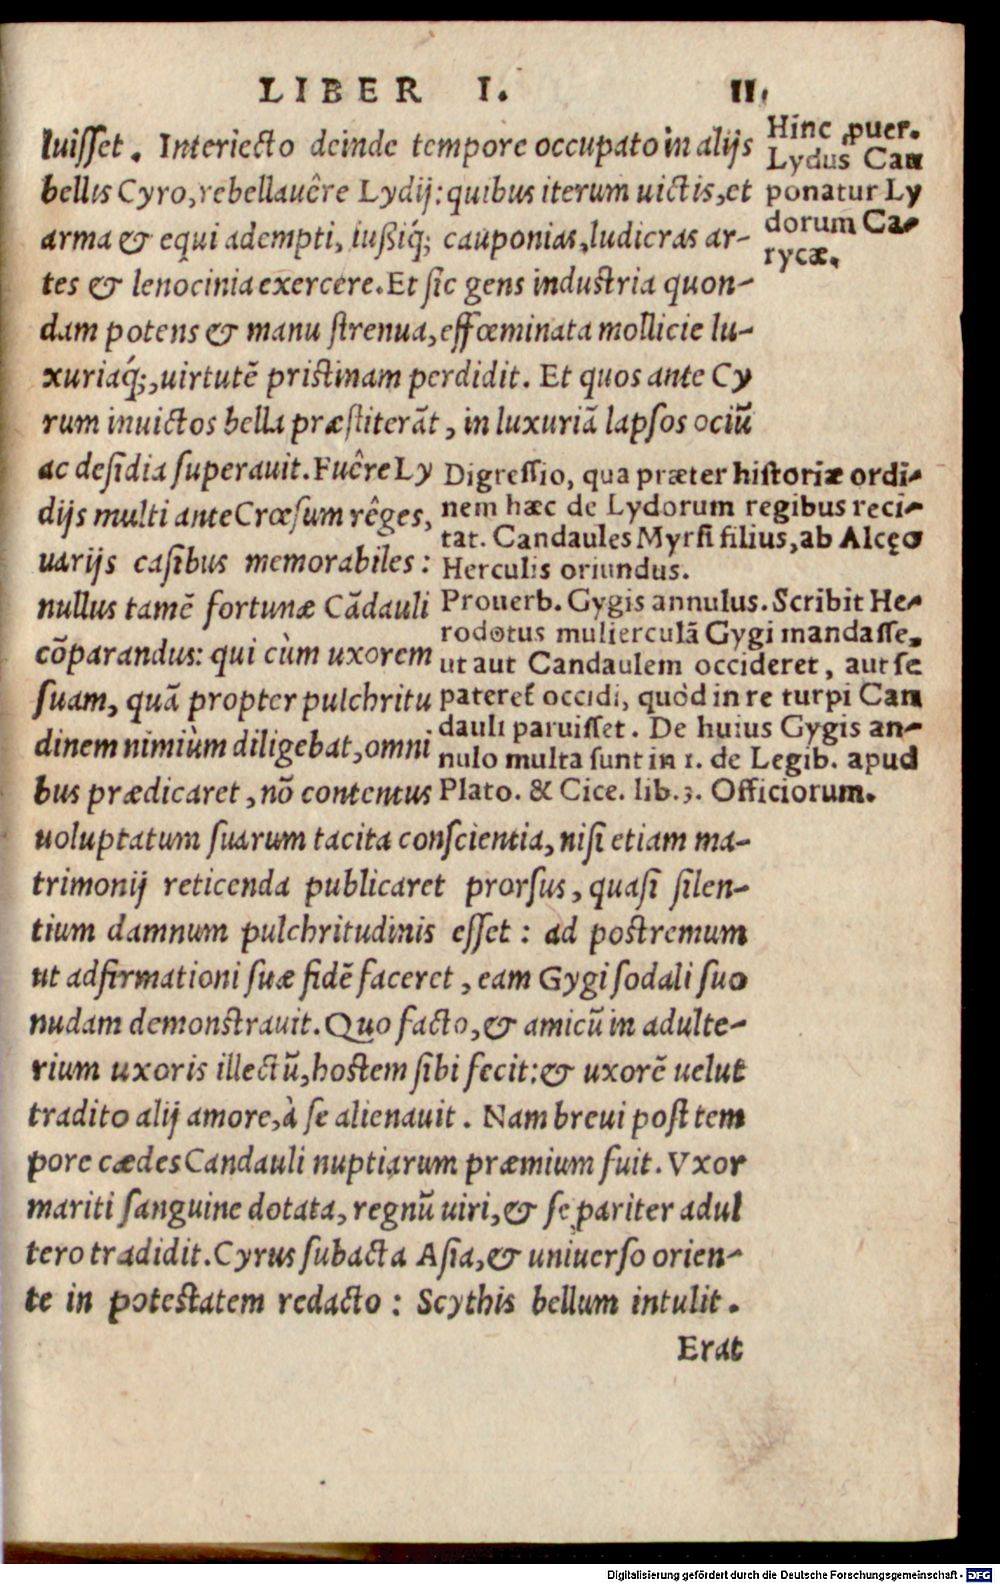 LIBER I. 11.
luisset. Interiecto deinde tempore occupato in alijs
bellis Cyro, rebellauêre Lydij: quibus iterum uictis, et
arma & equi adempti, iußiq́; cauponias, ludicras ar-
tes & lenocinia exercere. Et sic gens industria quon-
dam potens & manu strenua, effœminata mollicie lu-
xuriaq́;, uirtutẽ pristinam perdidit. Et quos ante Cy
rum inuictos bella præstiterãt, in luxuriã lapsos ociũ
ac desidia superauit. Fuêre Ly
dijs multi ante Crœsum rêges,
uarijs casibus memorabiles:
nullus tamẽ fortunæ Cãdauli
cõparandus: qui cùm uxorem
suam, quã propter pulchritu
dinem nimiùm diligebat, omni
bus prædicaret, nõ contentus
uoluptatum suarum tacita conscientia, nisi etiam ma-
trimonij reticenda publicaret prorsus, quasi silen-
tium damnum pulchritudinis esset: ad postremum
ut adfirmationi suæ fidẽ faceret, eam Gygi sodali suo
nudam demonstrauit. Quo facto, & amicũ in adulte-
rium uxoris illectũ, hostem sibi fecit: & uxorẽ uelut
tradito alij amore, à se alienauit. Nam breui post tem
pore cædes Candauli nuptiarum præmium fuit. Vxor
mariti sanguine dotata, regnũ uiri, & se pariter adul
tero tradidit. Cyrus subacta Asia, & uniuerso orien-
te in potestatem redacto: Scythis bellum intulit.
Erat
Hinc puer.
Lydus Cau
ponatur Ly
dorum Ca-
rycæ.
Digressio, qua præter historiæ ordi-
nem hæc de Lydorum regibus reci-
tat. Candaules Myrsi filius, ab Alcęo
Herculis oriundus.
Prouerb. Gygis annulus. Scribit He-
rodotus mulierculã Gygi mandasse,
ut aut Candaulem occideret, aut se
pateret́ occidi, quòd in re turpi Can
dauli paruisset. De huius Gygis an-
nulo multa sunt in 1. de Legib. apud
Plato. & Cice. lib. 3. Officiorum.
Digitalisierung gefördert durch die Deutsche Forschungsgemeinschaft - DFG